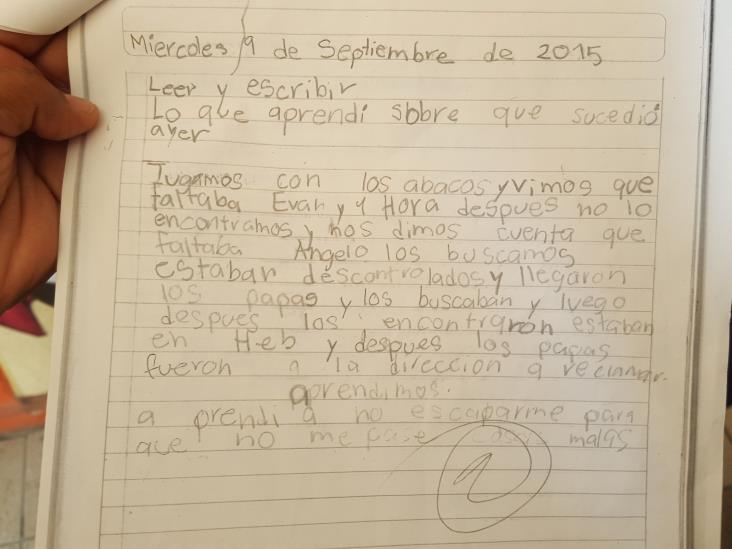 Miercoles 9 de Septiembre de 2015
Leer y escribir
Lo que aprendi sobre que sucedió
ayer
Jugamos con los abacos y vimos que
faltaba Evan y 1 Hora despues no lo
encontramos y nos dimos cuenta que
faltaba Angelo los buscamos
estaban descontrolados y llegaron
los papas y los buscaban y luego
despues los encontraron estaban
en H-eb y despues los papas
fueron a la dirección a reclamar.
aprendimos.
a prendi a no escaparme para
que no me pase cosas malas